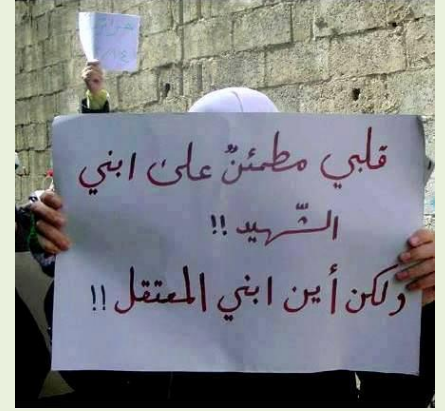 قلبي مطمئنٌ على ابني
الشّهيد !!
ولكن أين ابني المعتقل !!